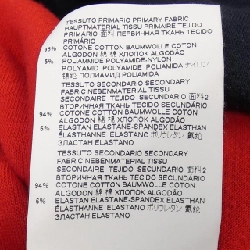 TESSUTO PRIMARIO PRIMARY FABRIC
HAUPTMATERIAL TISSU PRIMAIRE TEJIDO
PRIMARIO 面料 ПЕРВИЧНАЯ ТКАНЬ TECIDO
PRIMÁRIO
95% COTONE COTTON BAUMWOLLE COTON
ALGODON 綿 棉 ХЛОПОК ALGODÃO
5% POLIAMMIDE POLYAMIDE-NYLON
POLYAMID POLYAMIDE POLIAMIDA
ПОЛИАМИД POLIAMIDA
TESSUTO SECONDARIO SECONDARY
FABRIC NEBENMATERIAL TISSU
SECONDAIRE TEJIDO SECUNDARIO 面料2
ВТОРИЧНАЯ ТКАНЬ TECIDO SECUNDÁRIO
94% COTONE COTTON BAUMWOLLE COTON
ALGODON 綿 棉 ХЛОПОК ALGODÃO
6% ELASTAN ELASTANE-SPANDEX ELASTHAN
ELASTHANNE ELASTANO ポリウレタン 氨纶
ЭЛАСТАН ELASTANO
TESSUTO SECONDARIO SECONDARY
FABRIC NEBENMATERIAL TISSU
SECONDAIRE TEJIDO SECUNDARIO 面料2
ВТОРИЧНАЯ ТКАНЬ TECIDO SECUNDÁRIO
94% COTONE COTTON BAUMWOLLE COTON
ALGODON 綿 棉 ХЛОПОК ALGODÃO
6% ELASTAN ELASTANE-SPANDEX ELASTHAN
ELASTHANNE ELASTANO ポリウレタン 氨纶
ЭЛАСТАН ELASTANO